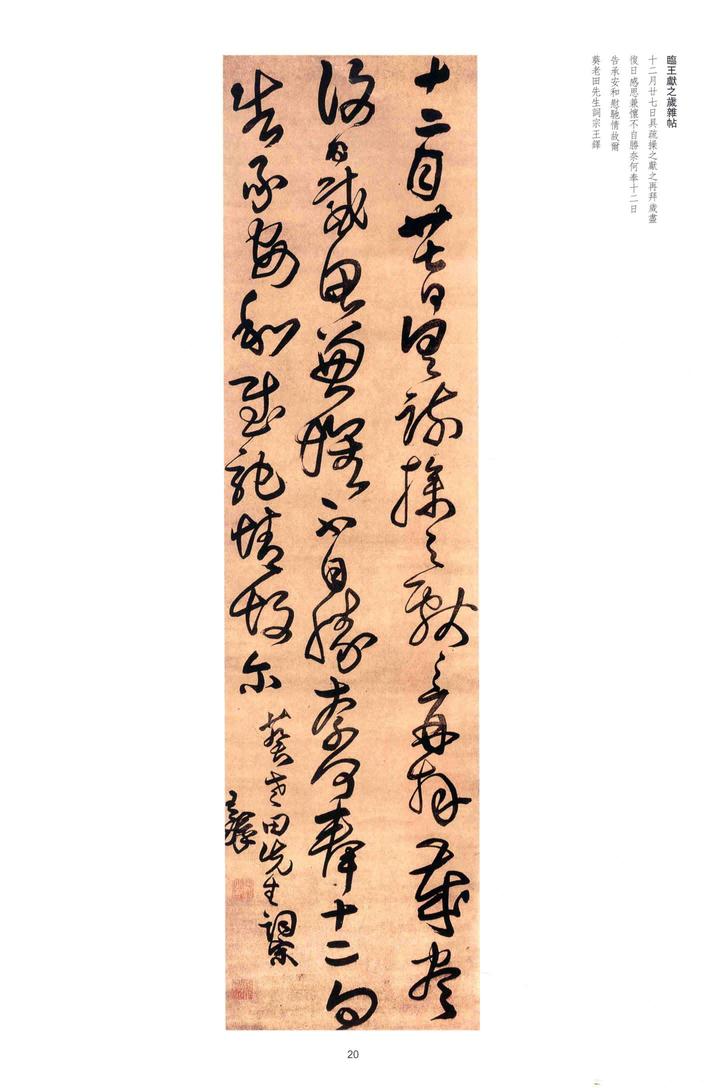 臨王獻之歲雜帖
十二月廿七日具疏操之獻之再拜歲盡
日感思兼懷不自勝奈何奉十二日
告承安和慰馳情故爾
葵老田先生詞宗王鐸
十二月廿七日具疏操之獻之再拜歲盡
日感思兼懷不自勝奈何奉十二
告承安和慰馳情故尔
葵老田先生詞宗
王鐸
20